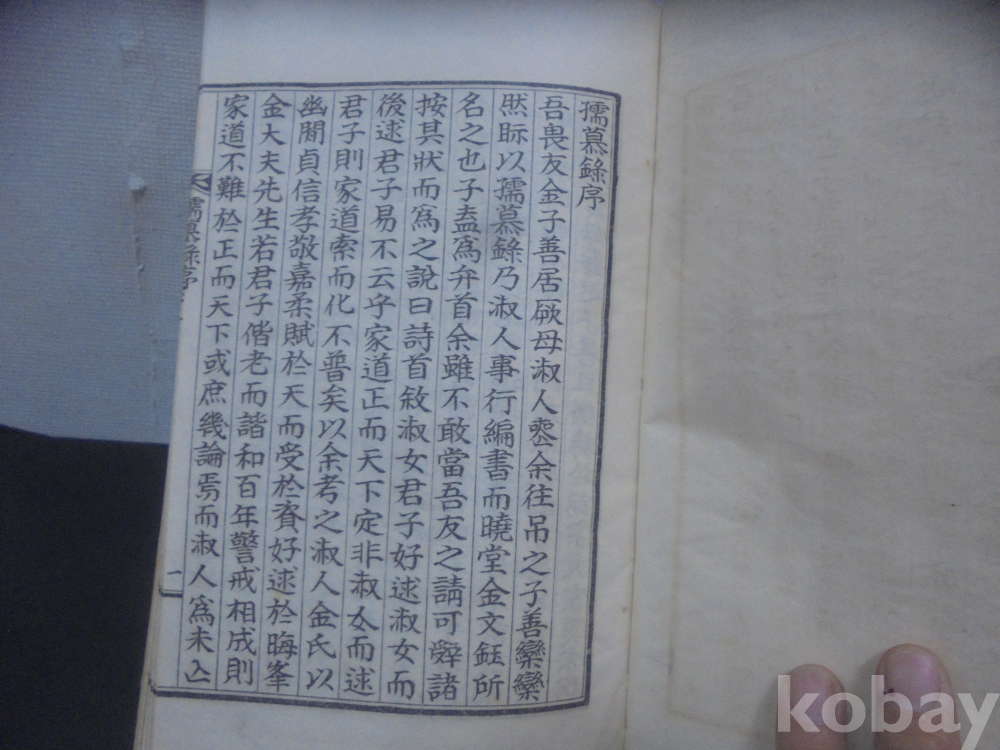 孺慕錄序
吾畏友金子善居厥母淑人喪余往吊之子善欒欒
然眎以孺慕錄乃淑人事行編書而曉堂金文鈺所
名之也子盍爲弁首余雖不敢當吾友之請可辭諸
按其狀而爲之說曰詩首敘淑女君子好逑淑女而
後逑君子易不云乎家道正而天下定非淑女而逑
君子則家道索而化不普矣以余考之淑人金氏以
幽閒貞信孝敬嘉柔賦於天而受於賚好逑於晦峯
金大夫先生若君子偕老而諧和百年警戒相成則
家道不難於正而天下或庶幾論焉而淑人爲未亡
孺慕錄序
一
kobay